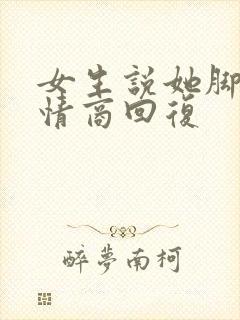 女生說她脚
情商回復
醉夢南柯